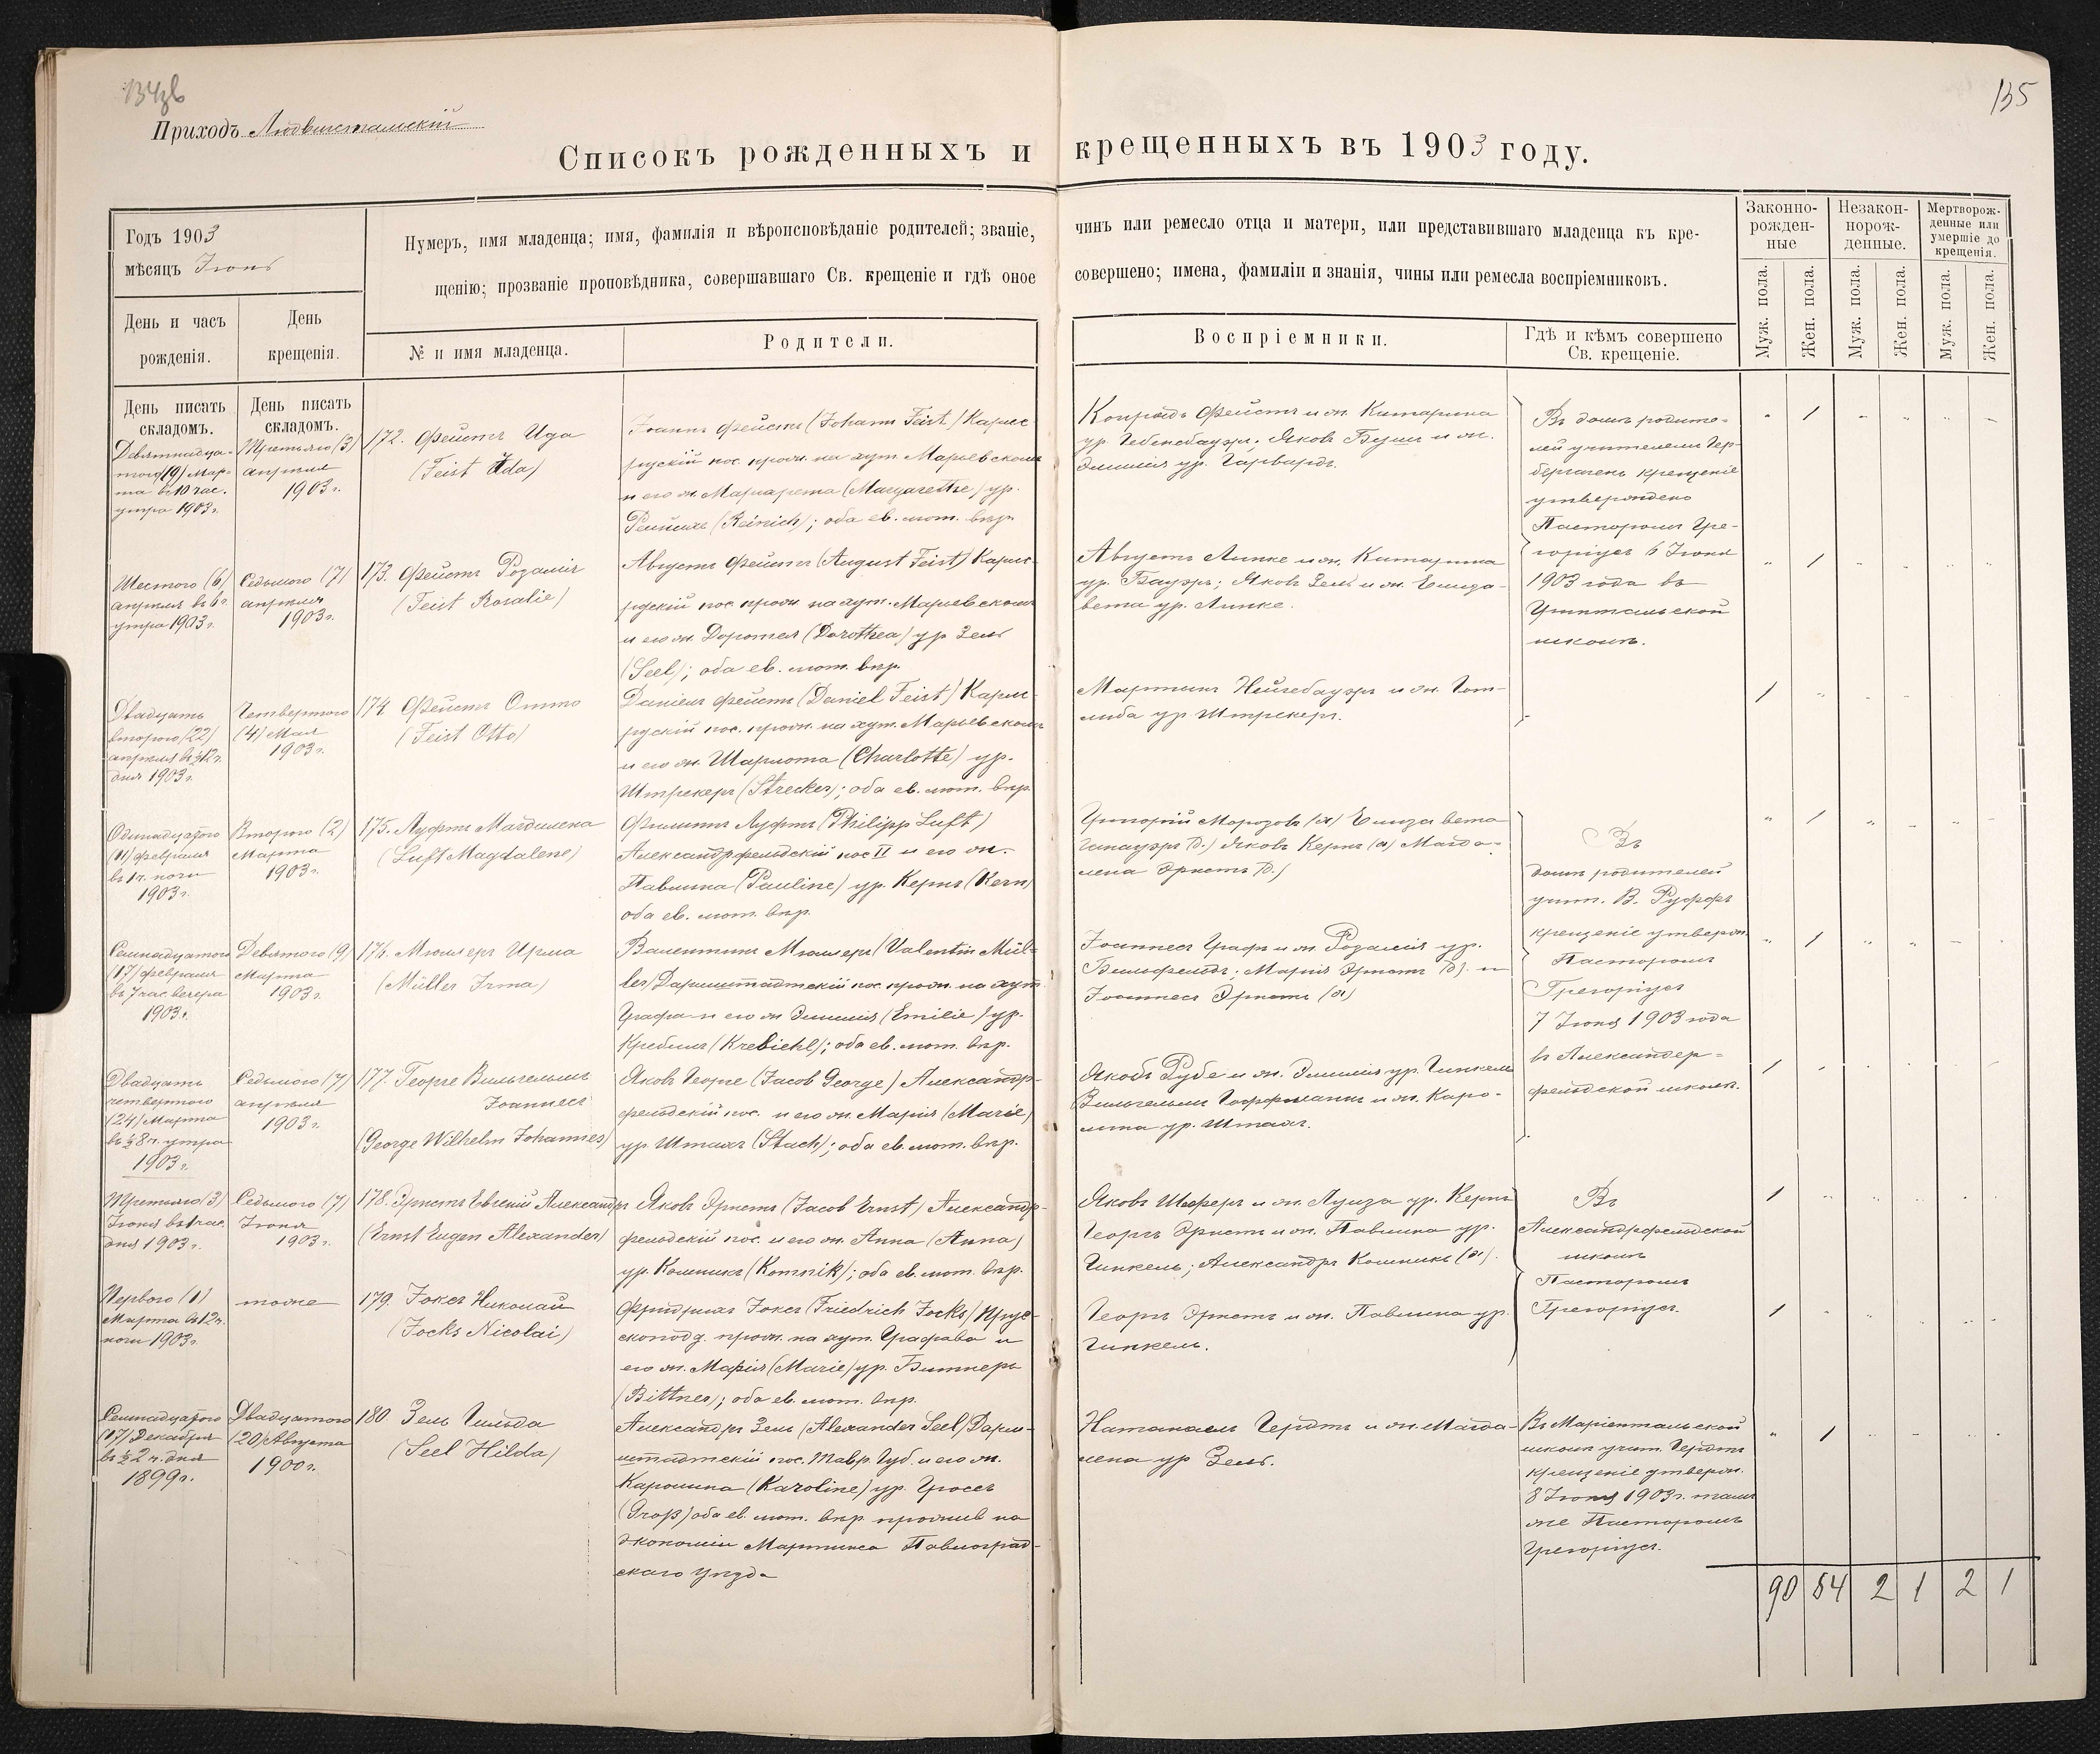 134 об
135
Приходъ Людвигстальскій
Списокъ рожденныхъ и крещенныхъ въ 1903 году.
Годъ 1903
мѣсяцъ Іюнь
Нумеръ, имя младенца; имя, фамилія и вѣроисповѣданіе родителей; званіе, чинъ или ремесло отца и матери, или представившаго младенца къ кре-
щенію; прозваніе проповѣдника, совершавшаго Св. крещеніе и гдѣ оное совершено; имена, фамиліи и знанія, чины или ремесла воспріемниковъ.
Законно-
рожден-
ные
Незакон-
норож-
денные.
Мертворож-
денные или
умершіе до
крещенія.
День и часъ
рожденія.
День
крещенія.
№ и имя младенца.
Родители.
Воспріемники.
Гдѣ и кѣмъ совершено
Св. крещеніе.
Муж. пола.
Жен. пола.
Муж. пола.
Жен. пола.
Муж. пола.
Жен. пола.
День писать
складомъ.
День писать
складомъ.
Девятнадца-
таго (19) Мар-
та въ 10 час.
утра 1903 г.
Третьяго (3)
апрѣля
1903 г.
172. Фейстъ Ида
(Feist Ida)
Іоаннъ Фейстъ (Johann Feist) Карлс-
рускій пос. прож. на хут. Марьевскомъ
и его ж. Маргарета (Margarethe) ур.
Рейнихъ (Reinich); оба ев. лют. вѣр.
Конрадъ Фейстъ и ж. Катарина
ур. Гебенсбауэръ; Яковъ Бушъ и ж.
Эмилія ур. Гарвардъ.
Въ домѣ родите-
лей учителемъ Гер-
бергагенъ крещеніе
утверждено
Пасторомъ Гре-
горіусъ 6 Іюня
1903 года въ
школѣ.
Шестого (6)
апрѣля въ 6 ч.
утра 1903 г.
Седьмого (7)
апрѣля
1903 г.
173. Фейстъ Розалія
(Feist Rosalie)
Августъ Фейстъ (August Feist) Карлс-
рускій пос. прож. на хут. Марьевскомъ
и его ж. Доротея (Dorothea) ур. Зель
(Seel); оба ев. лют. вѣр.
Августъ Линке и ж. Катарина
ур. Бауэръ; Яковъ Зель и ж. Елиза-
вета ур. Линке.
Двадцать
второго (22)
апрѣля въ ½12 ч.
дня 1903 г.
Четвертого
(4) Мая
1903 г.
174. Фейстъ Отто
(Feist Otto)
Даніель Фейстъ (Daniel Feist) Карлс-
рускій пос. прож. на хут. Марьевскомъ
и его ж. Шарлота (Charlotte) ур.
Штрекеръ (Strecker); оба ев. лют. вѣр.
Мартынъ Нейгебауэръ и ж. Гот-
либа ур. Штрекеръ.
Одинадцатого
(11) февраля
въ 1 ч. ночи
1903 г.
Второго (2)
Марта
1903 г.
175. Луфтъ Магдалена
(Luft Magdalene)
Филиппъ Луфтъ (Philipp Luft)
Александрфельдскій пос. II и его ж.
Павлина (Pauline) ур. Кернъ (Kern)
оба ев. лют. вѣр.
Григорій Морозовъ (х) Елизавета
Яковъ Кернъ (х) Магда-
лена Эрнстъ (д.)
Въ
домѣ родителей
учит. В. Руффъ
крещеніе утвержд.
Пасторомъ
Грегоріусъ
7 Іюня 1903 года
въ Александер-
фельдской школѣ.
Семнадцатого
(17) февраля
въ 7 час. вечера
1903 г.
Девятого (9)
Марта
1903 г.
176. Мюллеръ Ирма
(Müller Irma)
Валентинъ Мюллеръ (Valentin Mül-
ler) Дармштадтскій пос. прож. на хут.
Графа и его ж. Эмилія (Emilie) ур.
Кребиль (Krebiehl); оба ев. лют. вѣр.
Іоаннесъ Графъ и ж. Розалія ур.
Бильфельдъ; Марія Эрнстъ (д.) и
Іоаннесъ Эрнстъ (х)
Двадцать
четвертого
(24) Марта
въ ½ 8 ч. утра
1903 г.
Седьмого (7)
апрѣля
1903 г.
177. Георге Вильгельмъ
Іоаннесъ
(George Wilhelm Johannes)
Яковъ Георге (Jacob George) Александр-
фельдскій пос. и его ж. Марія (Marie)
ур. Штахъ (Stach); оба ев. лют. вѣр.
Якобъ Рубе и ж. Эмилія ур. Гинкель
Вильгельмъ Гоффманъ и ж. Каро-
лина ур. Штахъ.
Третьяго (3)
Іюня въ 1 час.
дня 1903 г.
Седьмого (7)
Іюня
1903 г.
178. Эрнстъ Евгеній Александръ
(Ernst Eugen Alexander)
Яковъ Эрнстъ (Jacob Ernst) Александр-
фельдскій пос. и его ж. Анна (Anna)
ур. Комникъ (Komnik); оба ев. лют. вѣр.
Яковъ Шеферъ и ж. Луиза ур. Кернъ
Георгъ Эрнстъ и ж. Павлина ур.
Гинкель; Александръ Комникъ (х).
Въ
Александрфельдской
школѣ
Пасторомъ
Грегоріусъ.
Перваго (1)
Марта въ 12 ч.
ночи 1903 г.
тоже
179. Іоксъ Николай
(Jocks Nicolai)
Фридрихъ Іоксъ (Friedrich Jocks) Прус-
скопод. прож. на хут. Графава и
его ж. Марія (Marie) ур. Битнеръ
(Bittner); оба ев. лют. вѣр.
Георгъ Эрнстъ и ж. Павлина ур.
Гинкель.
Семнадцатого
(17) Декабря
въ ½ 2 ч. дня
1899 г.
Двадцатого
(20) Августа
1900 г.
180 Зель Гильда
(Seel Hilda)
Александръ Зель (Alexander Seel) Дарм-
штадтскій пос. Тавр. Губ. и его ж.
Каролина (Karoline) ур. Гросъ
(Groß) оба ев. лют. вѣр. прожив. на
экономіи Мартинса Павлоград-
скаго Уѣзда
Натанаель Гердтъ и ж. Магда-
лена ур. Зель.
Въ Маріентальской
школѣ учит. Гердтъ
крещеніе утвержд.
8 Іюня 1903 г. тамъ
же Пасторомъ
Грегоріусъ.
90 84 2 1 2 1